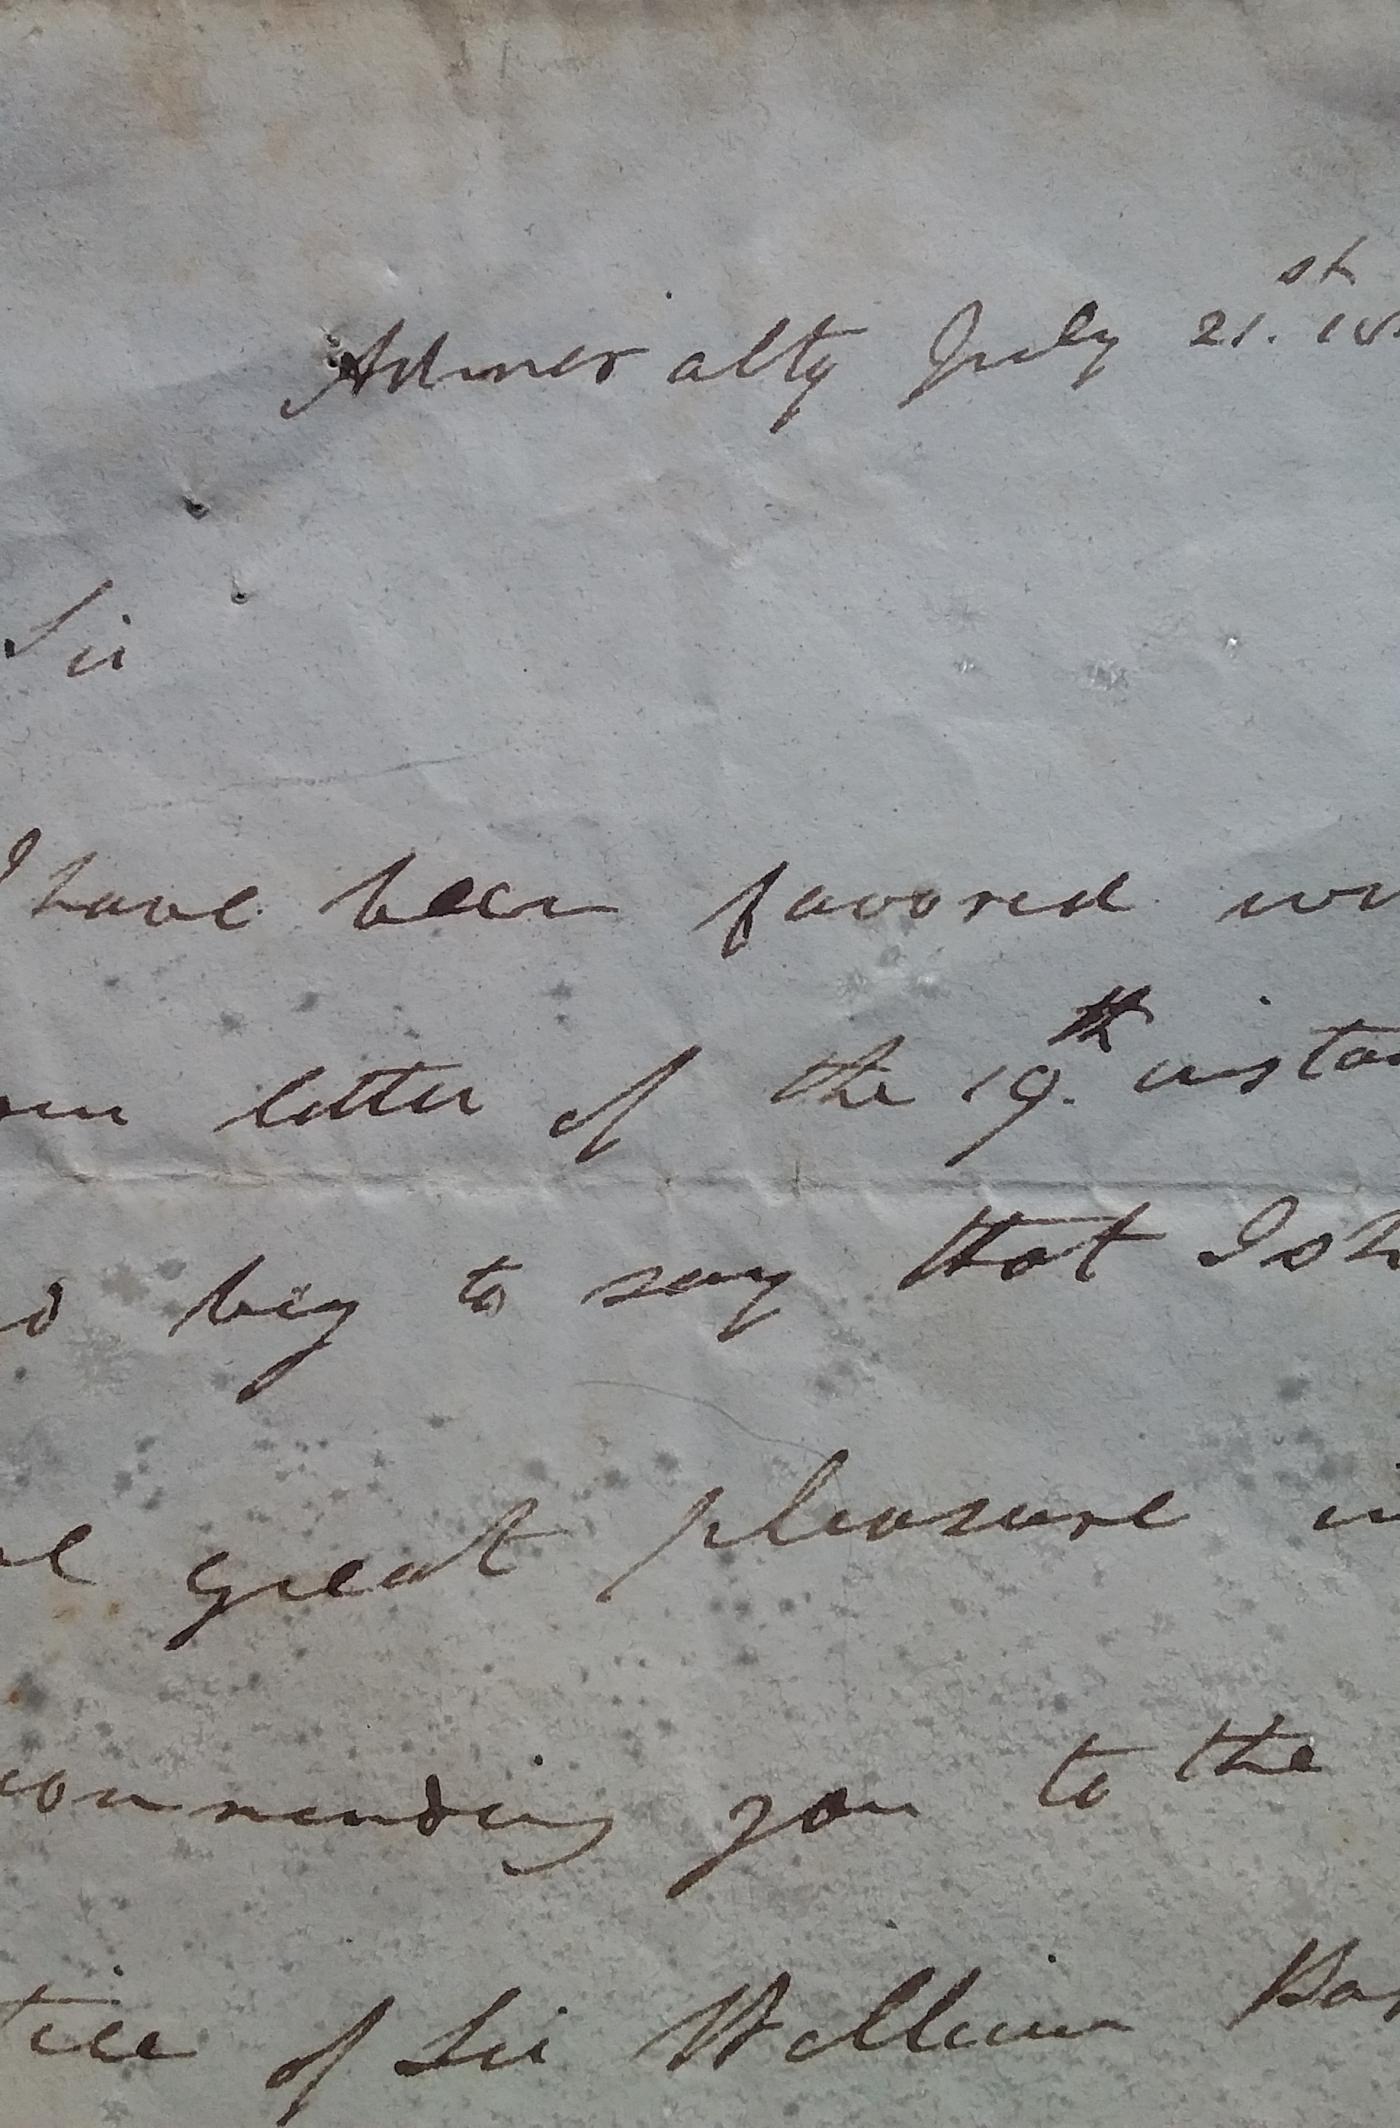 Admiralty July 21.st 18
Sir
I have been favored wi
our letter of the 19.th instan
d beg to say that I sh
e great pleasure in
commending you to the
tice of Sir William